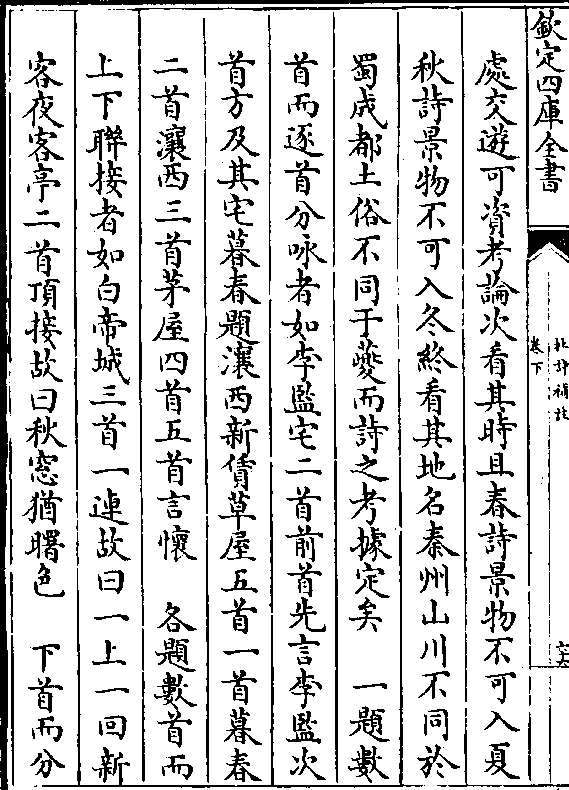 欽定四庫全書
杜詩補註
卷下
處交遊可資考論次看其時且春詩景物不可入夏
秋詩景物不可入冬終看其地名秦州山川不同於
蜀成都土俗不同于夔而詩之考據定矣　一題數
首而逐首分咏者如李監宅二首前首先言李監次
首方及其宅暮春題瀼西新賃草屋五首一首暮春
二首瀼西三首茅屋四首五首言懷　各題數首而
上下聯接者如白帝城三首一連故曰一上一回新
客夜客亭二首頂接故曰秋窓猶曙色　下首而分